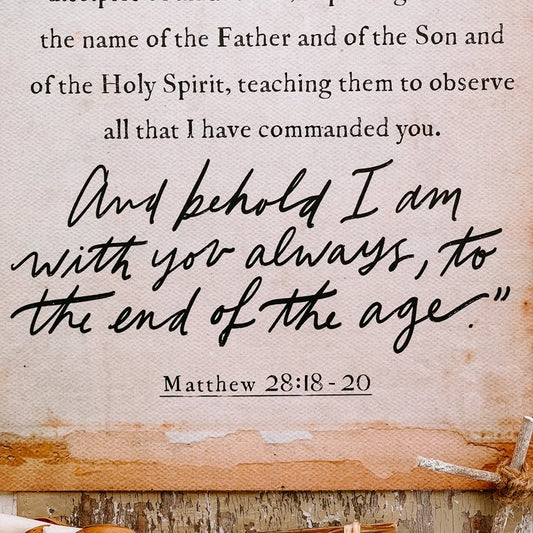 the name of the Father and of the Son and
of the Holy Spirit, teaching them to observe
all that I have commanded you.
And behold I am
with you always, to
the end of the age."
Matthew 28:18-20